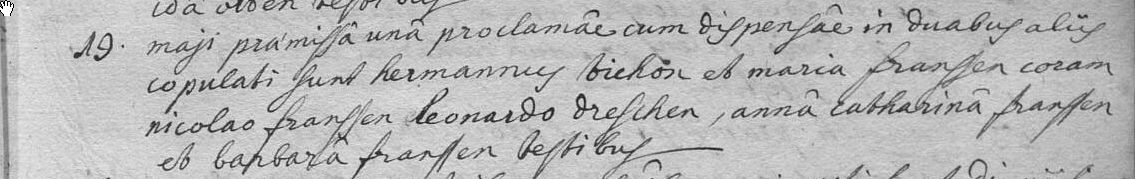 ida olden testibus
19. maji præmissâ unâ proclamâe cum dispensâe in duabus aliis
copulati sunt hermannus bickon et maria franssen coram
nicolao franssen Leonardo dreschen, annâ catharinâ franssen
et barbarâ franssen testibus